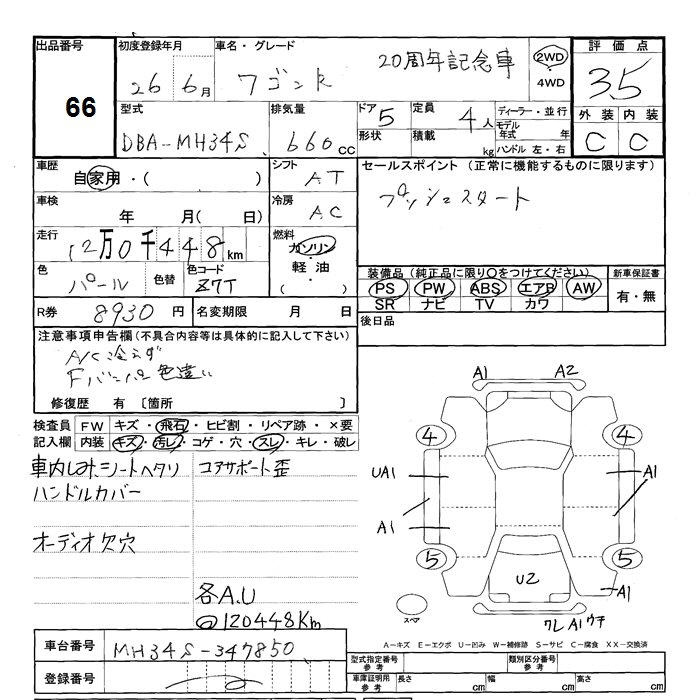 出品番号 初度登録年月 車名・グレード 評価点
66 26 6月 ワゴンR 20周年記念車 2WD 4WD 3.5
型式 排気量 ドア 5 定員 4人 ディーラー・並行 外装 内装
DBA-MH34S 660cc 形状 積載 kg モデル年式 年 ハンドル 左・右 C C
車歴 自家用・( ) シフト AT セールスポイント (正常に機能するものに限ります)
車検 年 月( 日) 冷房 AC プッシュスタート
走行 12万0千448km 燃料 ガソリン・軽油・( )
色 パール 色替 色コード Z7T 装備品 (純正品に限り○をつけてください) 新車保証書
PS PW ABS エアB AW 有・無
SR ナビ TV カワ
R券 8930円 名変期限 月 日 後日品
注意事項申告欄 (不具合内容等は具体的に記入して下さい)
A/C冷えず
Fバンパー色違い
修復歴 有 [箇所 ]
検査員 FW キズ・飛石・ヒビ割・リペア跡・×要
記入欄 内装 キズ・汚レ・コゲ・穴・スレ・キレ・破レ
車内しみ、シートヘタリ コアサポート歪
ハンドルカバー
オーディオ欠穴
各A.U
@120448Km
A1 A2
4 4
UA1 A1
A1
5 5
U2 A1
スペア ワレ A1 ウチ
A-キズ E-エクボ U-凹み W-補修跡 S-サビ C-腐食 XX-交換済
車台番号 MH34S-347850
型式指定番号 参考 類別区分番号 参考
登録番号 車庫証明用 参考 長さ cm 幅 cm 高さ cm